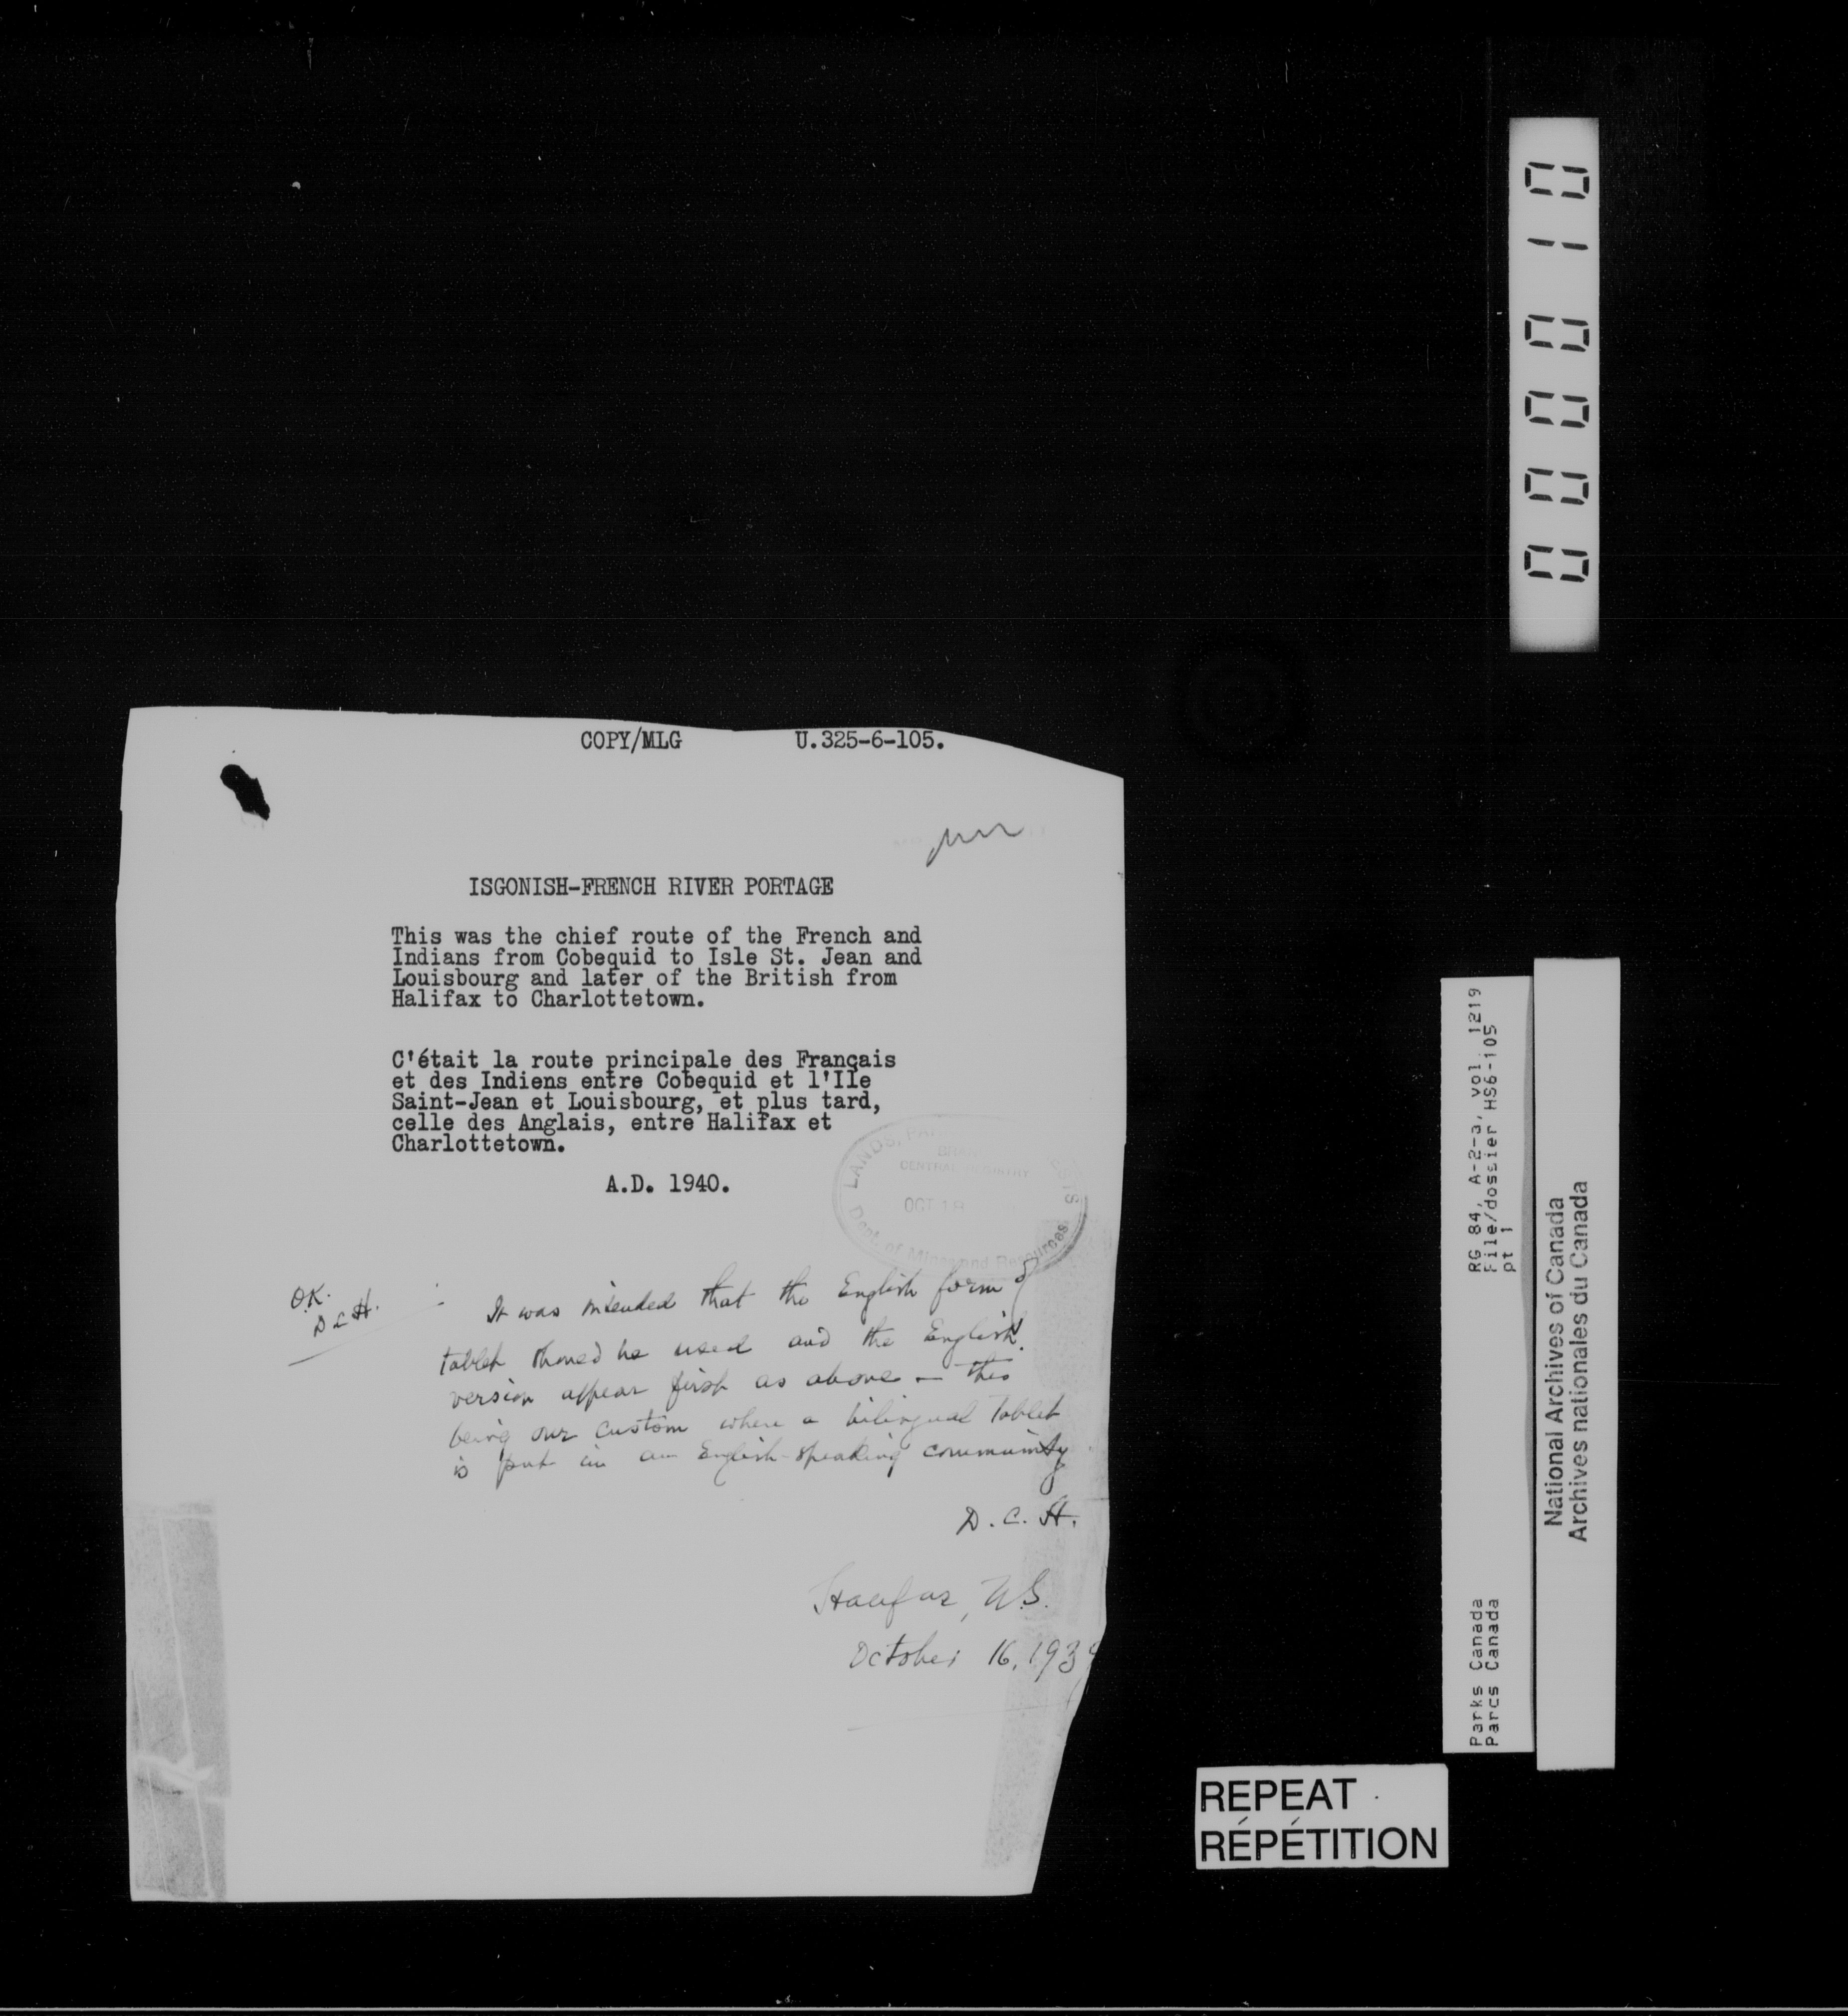 COPY/MLG U.325-6-105.
ISGONISH-FRENCH RIVER PORTAGE
This was the chief route of the French and
Indians from Cobequid to Isle St. Jean and
Louisbourg and later of the British from
Halifax to Charlottetown.
C'était la route principale des Français
et des Indiens entre Cobequid et l'Ile
Saint-Jean et Louisbourg, et plus tard,
celle des Anglais, entre Halifax et
Charlottetown.
A.D. 1940.
LANDS,
CENTRAL REGISTRY
OCT 18
Dept. of Mines and Resources
O.K.
D C H.
It was intended that the English form of
tablet should be used and the English
version appear first as above — this
being our custom when a bilingual tablet
is put in an English-speaking community
D. C. H.
Halifax, N.S.
October 16, 1939
000010
RG 84, A-2-a, vol. 1219
File/dossier HS6-105
pt 1
Parks Canada
Parcs Canada
National Archives of Canada
Archives nationales du Canada
REPEAT
RÉPÉTITION